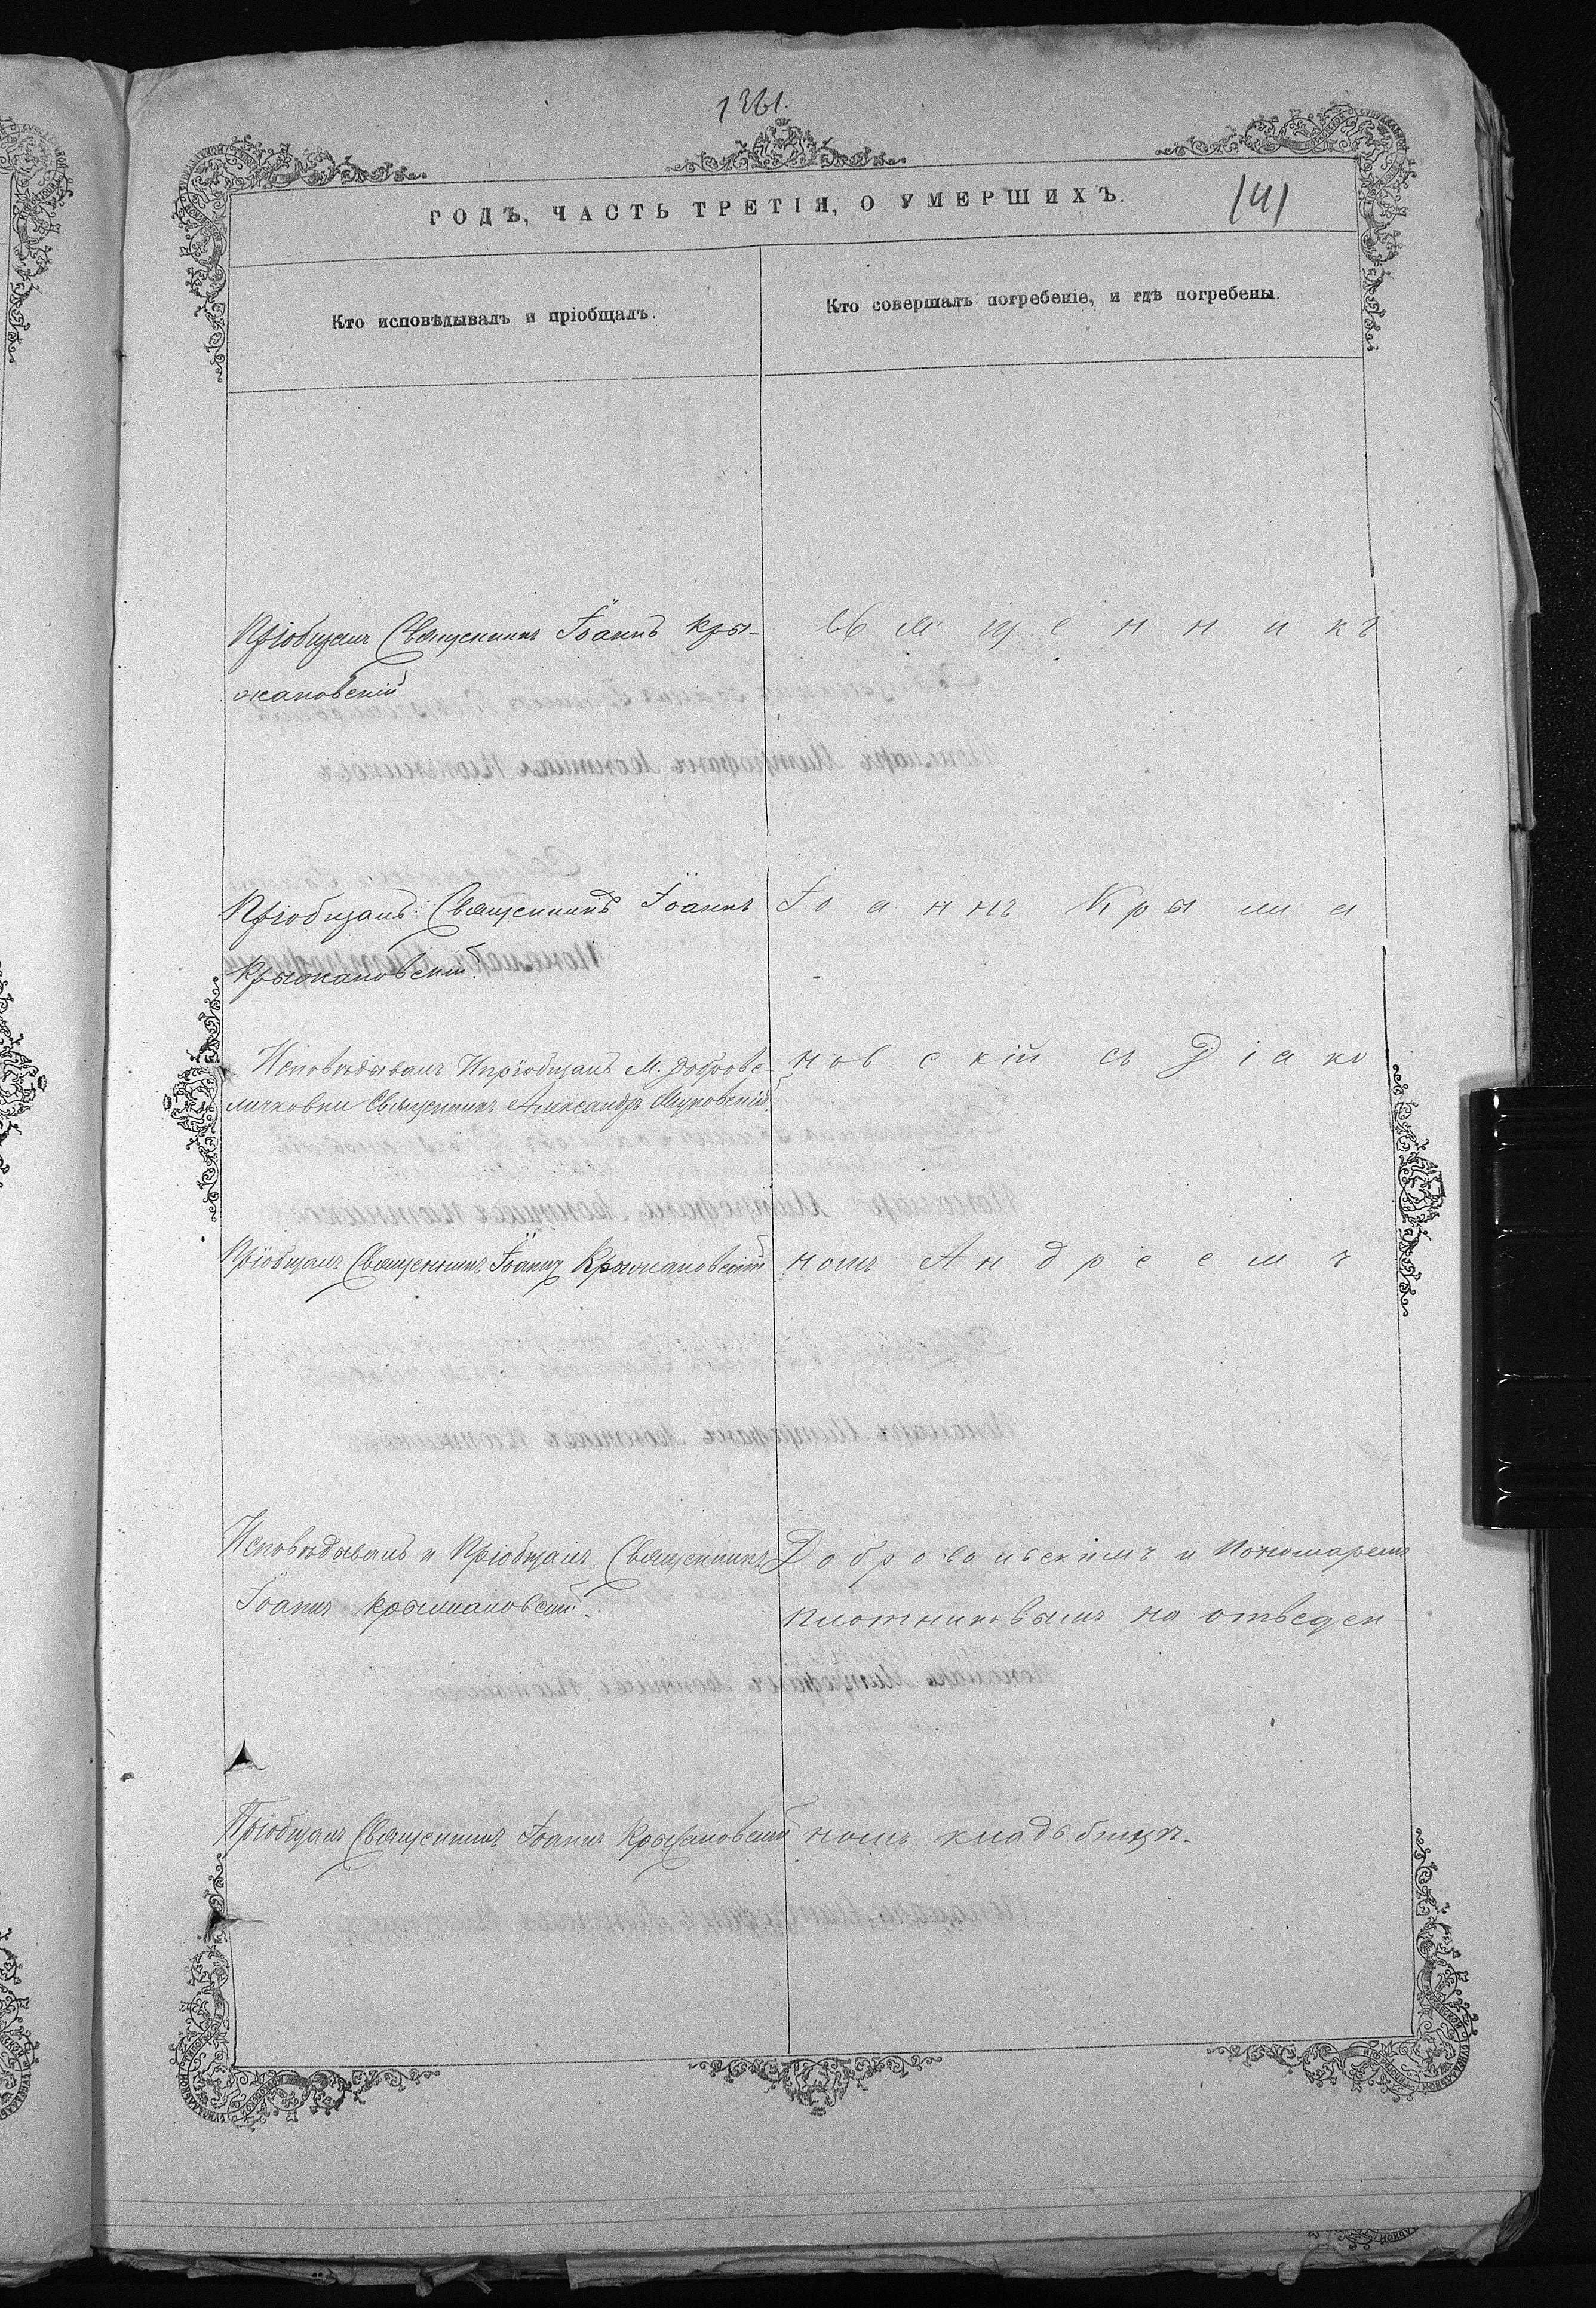 1361.
141
ГОДЪ, ЧАСТЬ ТРЕТІЯ, О УМЕРШИХЪ.
Кто исповѣдывалъ и пріобщалъ.
Кто совершалъ погребеніе, и гдѣ погребены.
Пріобщалъ Священникъ Іоаннъ Кры-
жановскій
Пріобщалъ Священникъ Іоаннъ
Крыжановскій.
Исповѣдывалъ Ипріобщалъ М. Доброве-
личковки Священникъ Александръ
Пріобщалъ Священникъ Іоаннъ Крыжановскій
Исповѣдывалъ и Пріобщалъ Священникъ
Іоаннъ Крыжановскій.
Пріобщалъ Священникъ Іоаннъ Крыжановскій
Священникъ
Іоаннъ Крыжа
новскій съ Діако
номъ Андреемъ
Добровольскимъ и Пономаремъ
Плотниковымъ на отведен-
номъ кладъбищѣ.